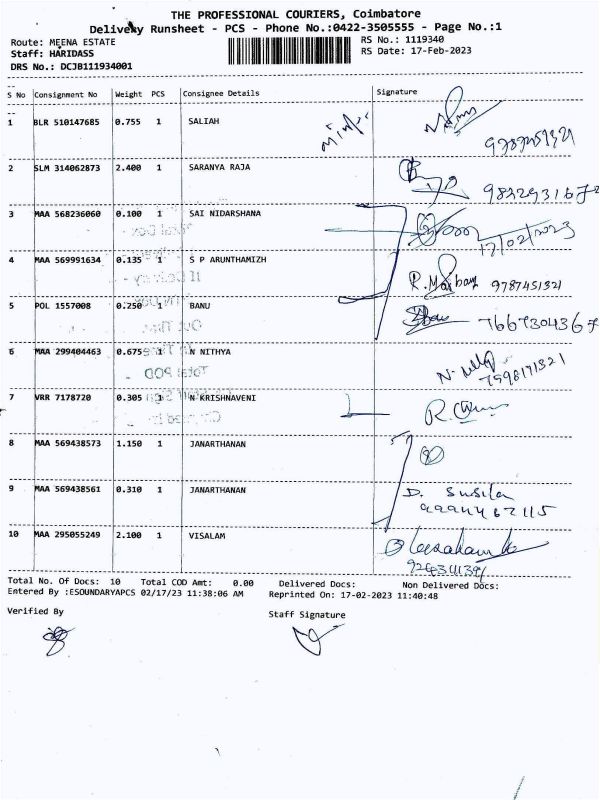 THE PROFESSIONAL COURIERS, Coimbatore
Delivery Runsheet - PCS - Phone No.:0422-3505555 - Page No.:1
Route: MEENA ESTATE
RS No.: 1119340
Staff: HARIDASS
RS Date: 17-Feb-2023
DRS No.: DCJB111934001
S No Consignment No Weight PCS Consignee Details Signature
1 BLR 510147685 0.755 1 SALIAH
2 SLM 314062873 2.400 1 SARANYA RAJA
3 MAA 568236060 0.100 1 SAI NIDARSHANA
17/02/2023
4 MAA 569991634 0.135 1 S P ARUNTHAMIZH
9787451321
5 POL 1557008 0.250 1 BANU
6 MAA 299404463 0.675 1 N NITHYA
7 VRR 7178720 0.305 1 N KRISHNAVENI
8 MAA 569438573 1.150 1 JANARTHANAN
9 MAA 569438561 0.310 1 JANARTHANAN
D. Susila
10 MAA 295055249 2.100 1 VISALAM
Total No. Of Docs: 10 Total COD Amt: 0.00 Delivered Docs: Non Delivered Docs:
Entered By :ESOUNDARYAPCS 02/17/23 11:38:06 AM Reprinted On: 17-02-2023 11:40:48
Verified By
Staff Signature